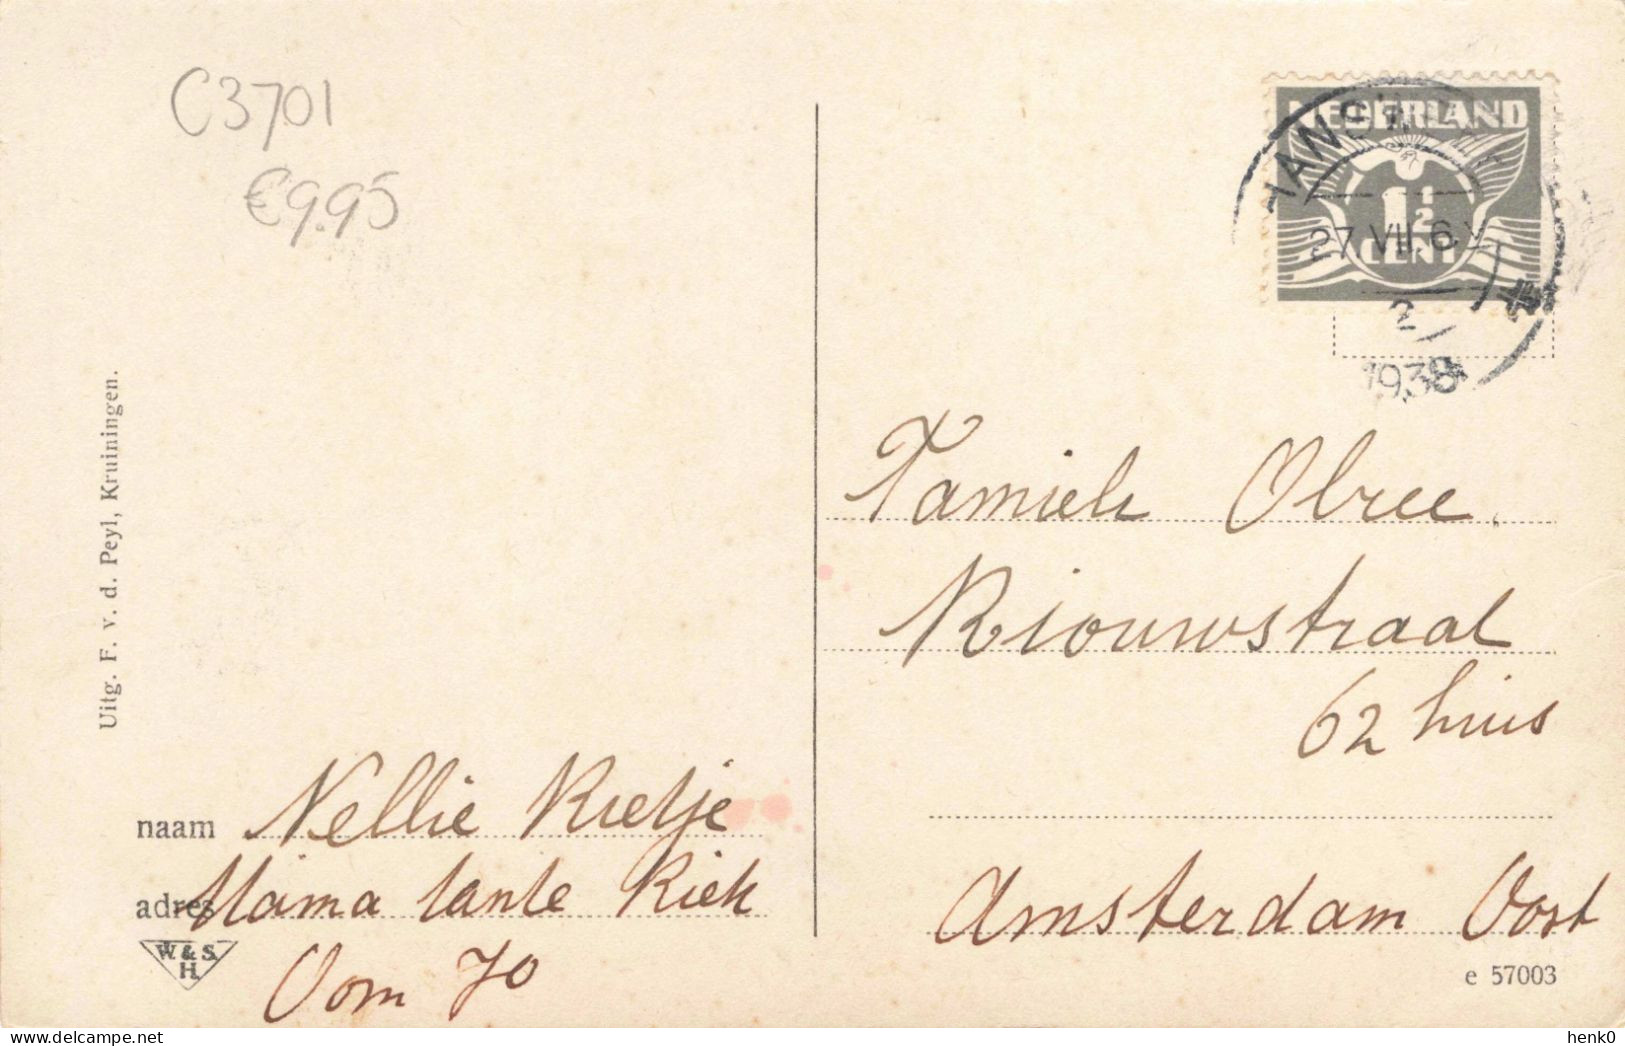 C3701
€9.95
NEDERLAND
1½
CENT
HANSWEE
27.VII.6.V
2
1938
Uitg. F. v. d. Peyl, Kruiningen.
Familie Obree.
Riouwstraat
62 huis
Amsterdam Oost
naam Nellie Rietje
adres Mama tante Riek
Oom Jo
W. & S.
H.
e 57003
delcampe.net
henk0